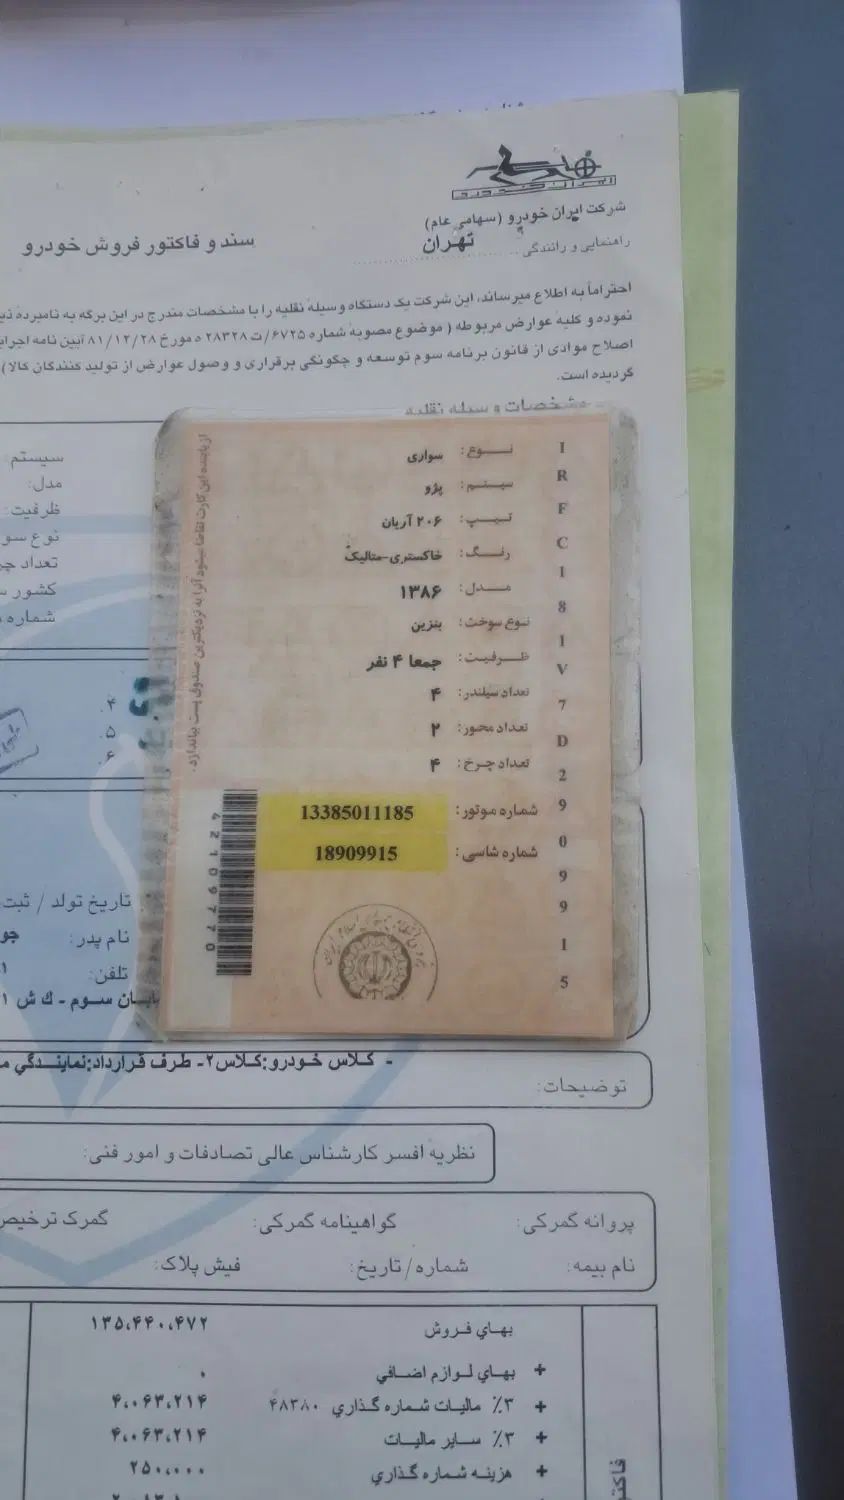 ایران خودرو
شرکت ایران خودرو (سهامی عام)
راهنمایی و رانندگی
تهران
سند و فاکتور فروش خودرو
احتراماً به اطلاع میرساند، این شرکت یک دستگاه وسیله نقلیه را با مشخصات مندرج در این برگه به نامبرده
نموده و کلیه عوارض مربوطه ( موضوع مصوبه شماره ۶۷۲۵/ت ۲۸۳۲۸ ه مورخ ۸۱/۱۲/۲۸ آیین نامه
اصلاح موادی از قانون برنامه سوم توسعه و چگونگی برقراری و وصول عوارض از تولید کنندگان کالا)
گردیده است.
مشخصات وسیله نقلیه
سیستم:
مدل:
ظرفیت:
نوع
تعداد
کشور
شماره
نوع: سواری
سیستم: پژو
تیپ: ۲۰۶ آریان
رنگ: خاکستری-متالیک
مدل: ۱۳۸۶
نوع سوخت: بنزین
ظرفیت: جمعا ۴ نفر
تعداد سیلندر: ۴
تعداد محور: ۲
تعداد چرخ: ۴
شماره موتور: 13385011185
شماره شاسی: 18909915
IRFC181V7D2909915
از یابنده این کارت تقاضا میشود آنرا به نزدیکترین صندوق پست بیاندازد.
۴
۵
۶
تاریخ تولد / ثبت
نام پدر:
تلفن:
سوم - ك ش
- كلاس خودرو:كلاس۲- طرف قرارداد:نمایندگي
توضیحات:
نظریه افسر کارشناس عالی تصادفات و امور فنی:
پروانه گمرکی:
گواهینامه گمرکی:
گمرک ترخیص
نام بیمه:
شماره/تاریخ:
فیش پلاک:
بهاي فروش ۱۳۵،۴۴۰،۴۷۲
+ بهاي لوازم اضافي ۰
+ ۳٪ مالیات شماره گذاري ۴۸۳۸۰ ۴،۰۶۳،۲۱۴
+ ۳٪ سایر مالیات ۴،۰۶۳،۲۱۴
+ هزینه شماره گذاري ۲۵۰،۰۰۰